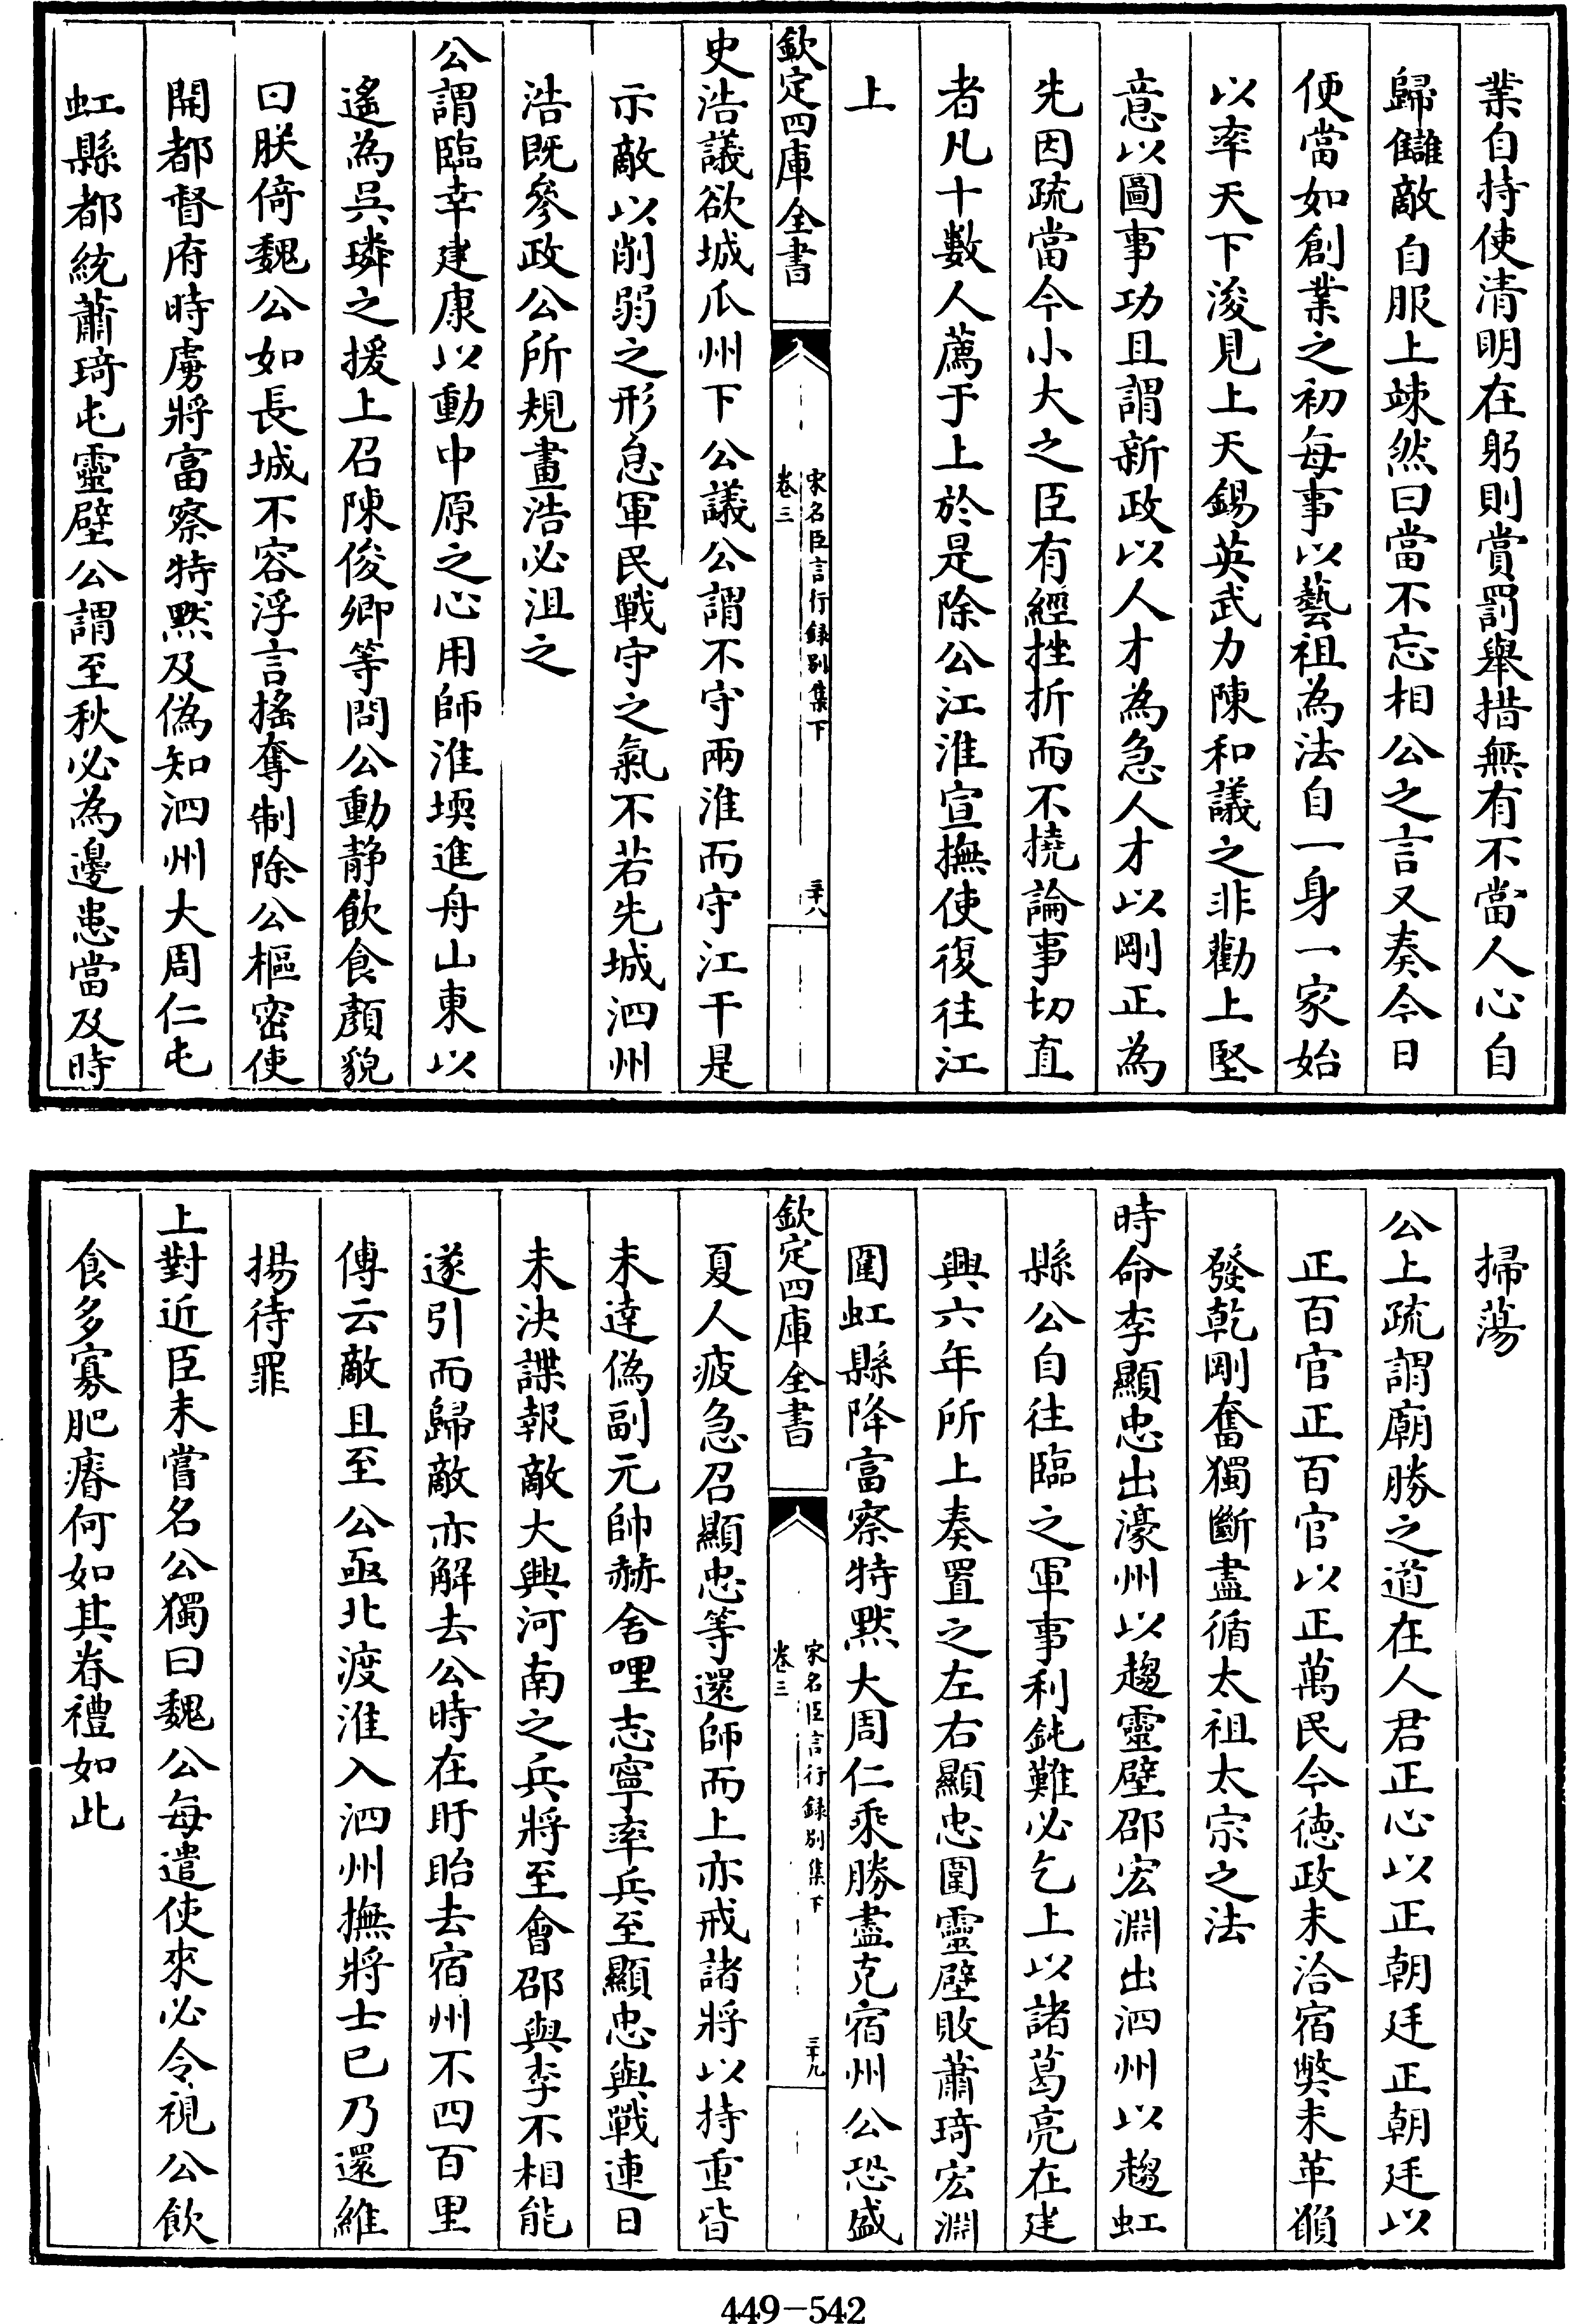 業自持使清明在躬則賞罰舉措無有不當人心自
歸讎敵自服上竦然曰當不忘相公之言又奏今日
便當如創業之初每事以藝祖為法自一身一家始
以率天下浚見上天錫英武力陳和議之非勸上堅
意以圖事功且謂新政以人才為急人才以剛正為
先因疏當今小大之臣有經挫折而不撓論事切直
者凡十數人薦于上於是除公江淮宣撫使復往江
上
欽定四庫全書
宋名臣言行録别集下
卷三
三十八
史浩議欲城瓜州下公議公謂不守兩淮而守江干是
示敵以削弱之形怠軍民戰守之氣不若先城泗州
浩既參政公所規畫浩必沮之
公謂臨幸建康以動中原之心用師淮堧進舟山東以
遙為吳璘之援上召陳俊卿等問公動静飲食顏貌
曰朕倚魏公如長城不容浮言搖奪制除公樞密使
開都督府時虜將富察特黙及偽知泗州大周仁屯
虹縣都統蕭琦屯靈壁公謂至秋必為邊患當及時
掃蕩
公上疏謂廟勝之道在人君正心以正朝廷正朝廷以
正百官正百官以正萬民今徳政未洽宿弊未革願
發乾剛奮獨斷盡循太祖太宗之法
時命李顯忠出濠州以趨靈壁邵宏淵出泗州以趨虹
縣公自往臨之軍事利鈍難必乞上以諸葛亮在建
興六年所上奏置之左右顯忠圍靈壁敗蕭琦宏淵
圍虹縣降富察特黙大周仁乘勝盡克宿州公恐盛
欽定四庫全書
宋名臣言行録别集下
卷三
三十九
夏人疲急召顯忠等還師而上亦戒諸將以持重皆
未達偽副元帥赫舍哩志寧率兵至顯忠與戰連日
未決諜報敵大興河南之兵將至會邵與李不相能
遂引而歸敵亦解去公時在盱眙去宿州不四百里
傳云敵且至公亟北渡淮入泗州撫將士已乃還維
揚待罪
上對近臣未嘗名公獨曰魏公每遣使來必令視公飲
食多寡肥瘠何如其眷禮如此
449-542